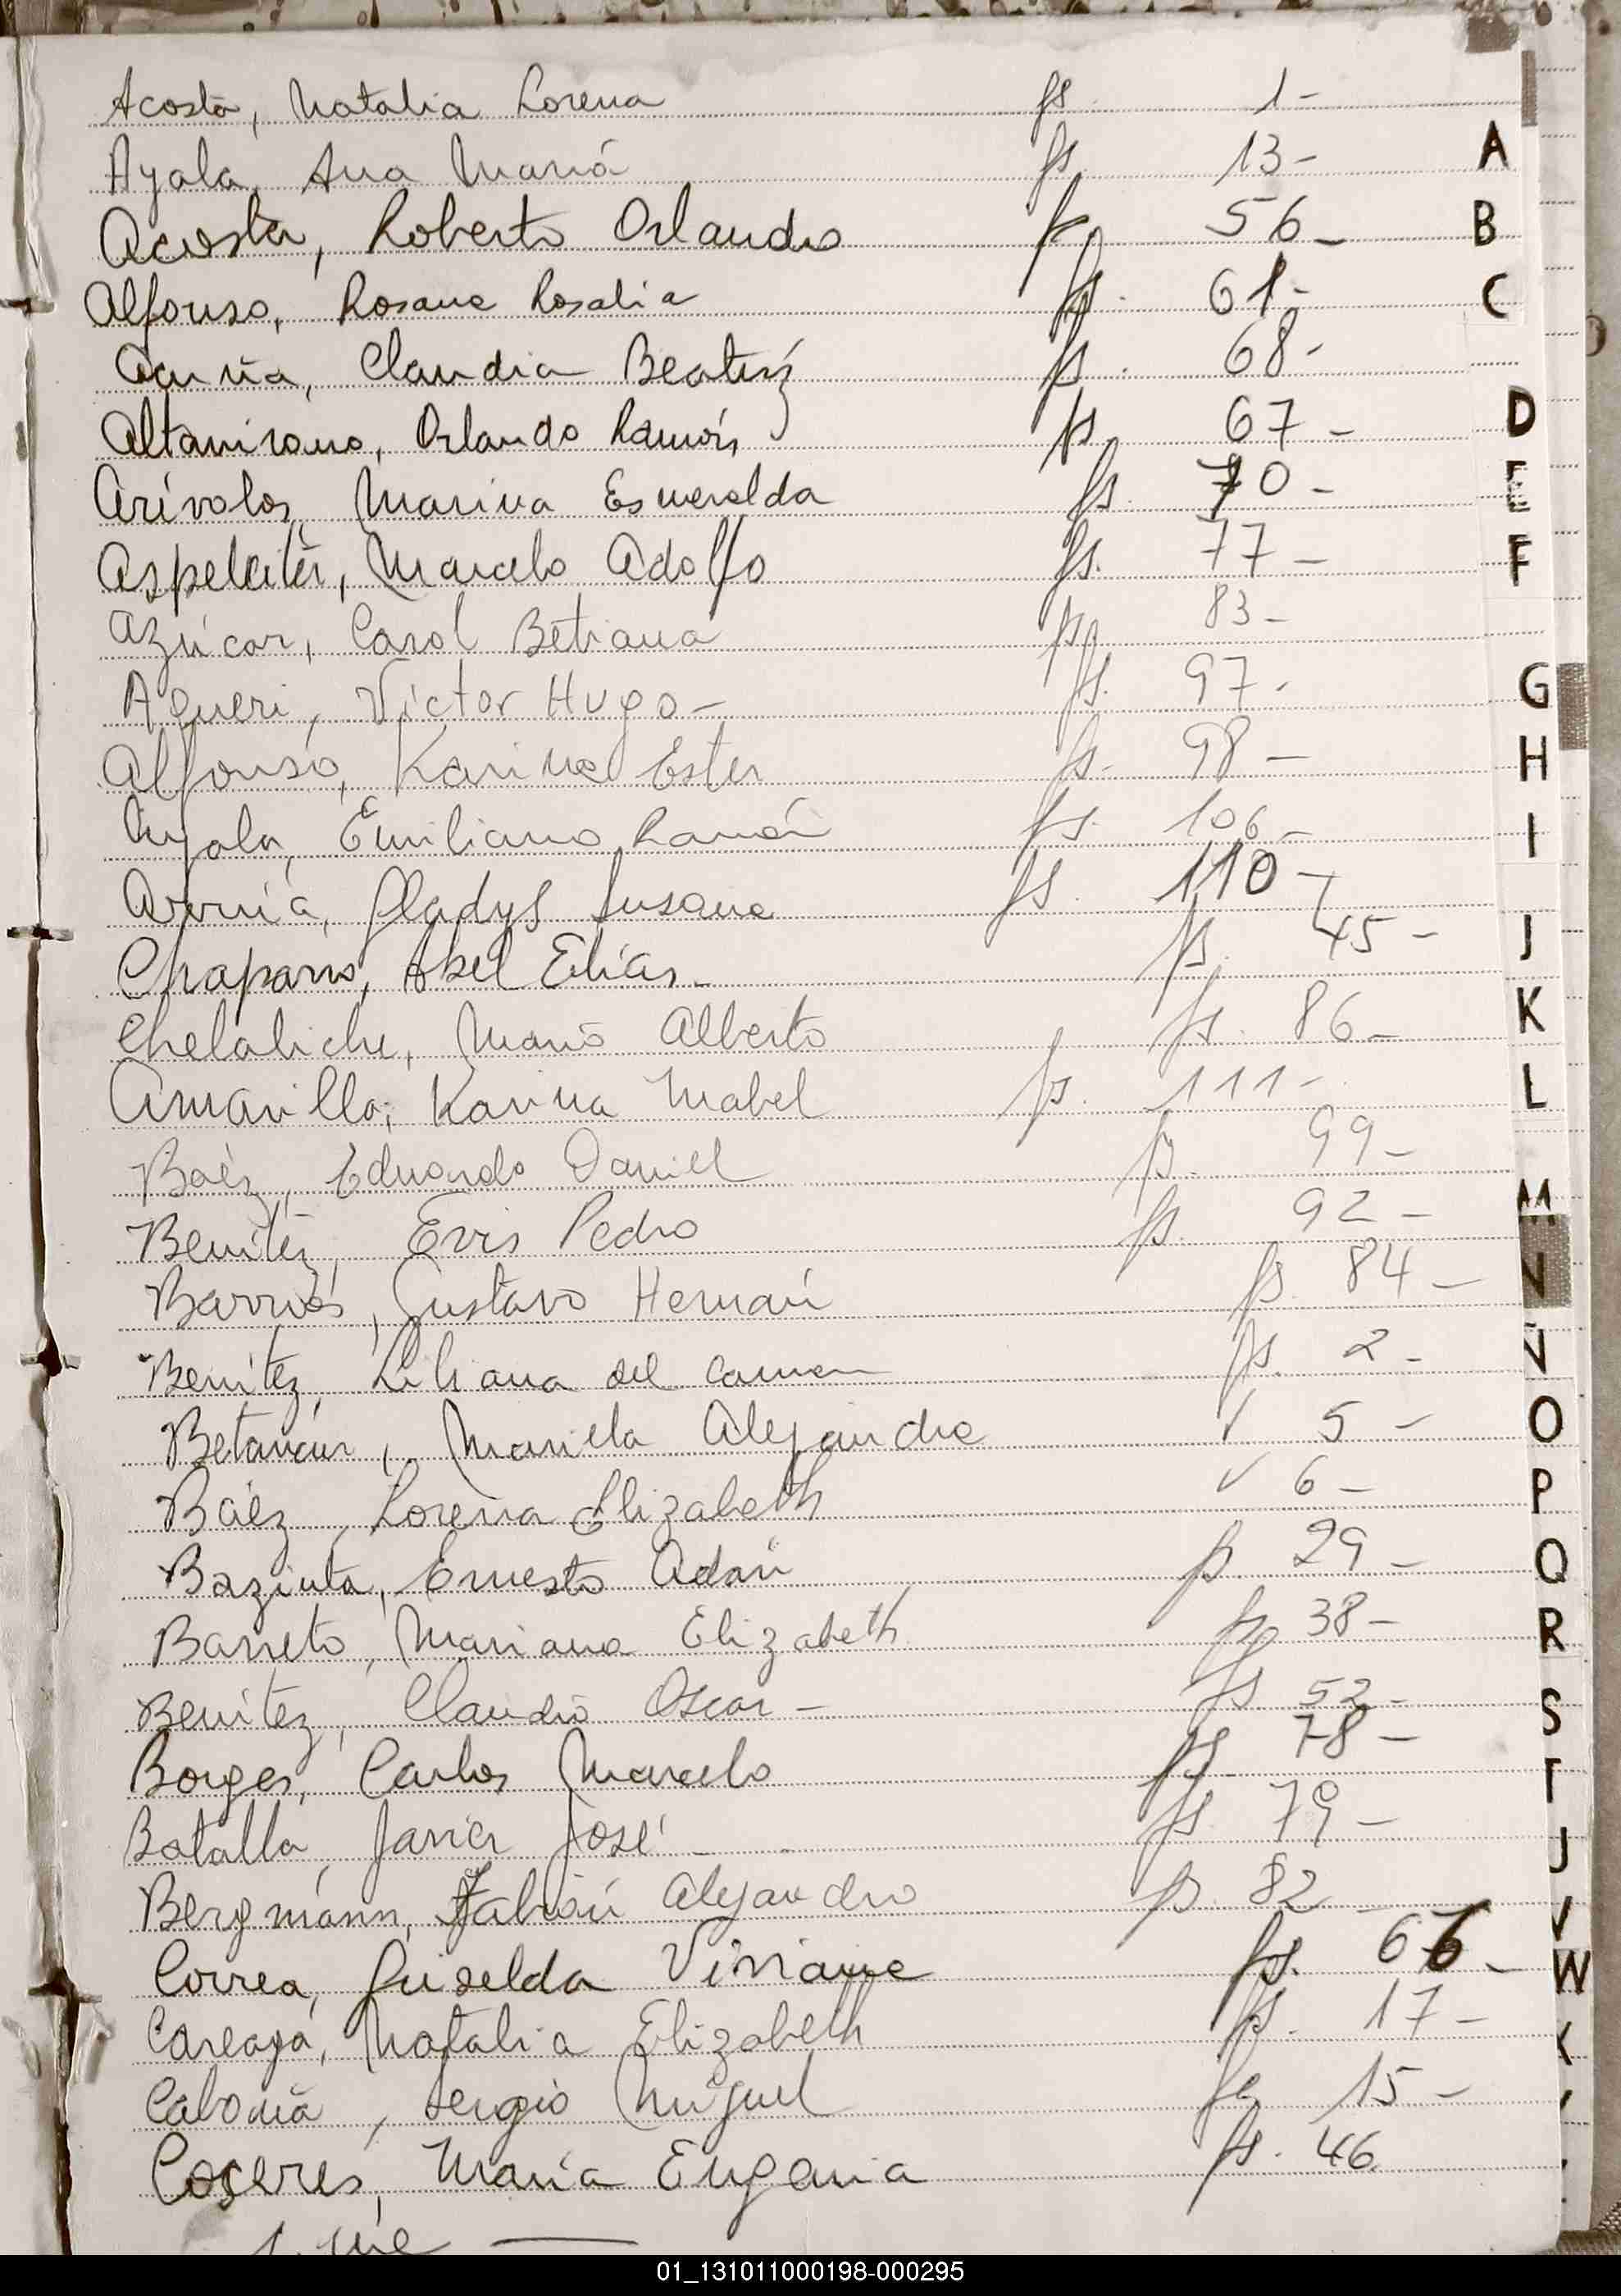 Acosta, Natalia Lorena fs. 1-
Ayala, Ana María fs. 13-
Acosta, Roberto Orlando fs. 56-
Alfonso, Rosana Rosalia fs. 61-
Acuña, Claudia Beatriz fs. 68-
Altamirano, Orlando Ramón fs. 67-
Arévalos, Marina Esmeralda fs. 70-
Aspeleiter, Marcelo Adolfo fs. 77-
Azúcar, Carol Betiana fs. 83-
Agueri, Victor Hugo- fs. 97-
Alfonso, Karina Ester fs. 98-
Ayala, Emiliano Ramón fs. 106-
Gladys Susana fs. 110-
Chaparro, Abel Elías.- fs. 45-
Chelaliche, Mario Alberto fs. 86-
Amarilla, Karina Mabel fs. 111-
Baéz, Eduardo Daniel fs. 99-
Benítez, Evis Pedro fs. 92-
Barrios, Gustavo Hernán fs. 84-
Benítez, Liliana del Carmen fs. 2-
Betancur, Mariela Alejandra 5-
Báez, Lorena Elizabeth 6-
Bazinta, Ernesto Adán fs. 29-
Barreto, Mariana Elizabeth fs. 38-
Benítez, Claudio Oscar- fs. 52-
Borges, Carlos Marcelo fs. 78-
Batalla, Javier José fs. 79-
Bergmánn, Fabián Alejandro fs. 82-
Correa, Griselda Viviana fs. 66-
Careaga, Natalia Elizabeth fs. 17-
Sergio Miguel fs. 15-
Coceres, María Eugenia fs. 46.
A
B
C
D
E
F
G
H
I
J
K
L
M
N
Ñ
O
P
Q
R
S
T
U
V
W
X
01_131011000198-000295